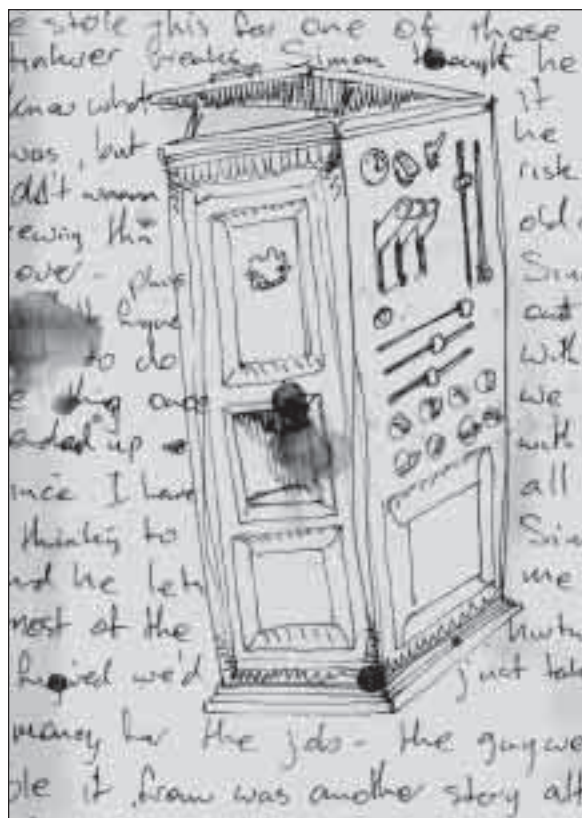 e stole this for one of these
tinkerer freaks Simon thought he
knew what it
was, but he
didn't wanna risk
rewing this old
over - plus Sim
figure out
to do with
e thing once we
ended up with
ince I have all
thinking to Sim
nd he lets me
most of the
figured we'd just take
money for the job - the guy we
ole it from was another story alt